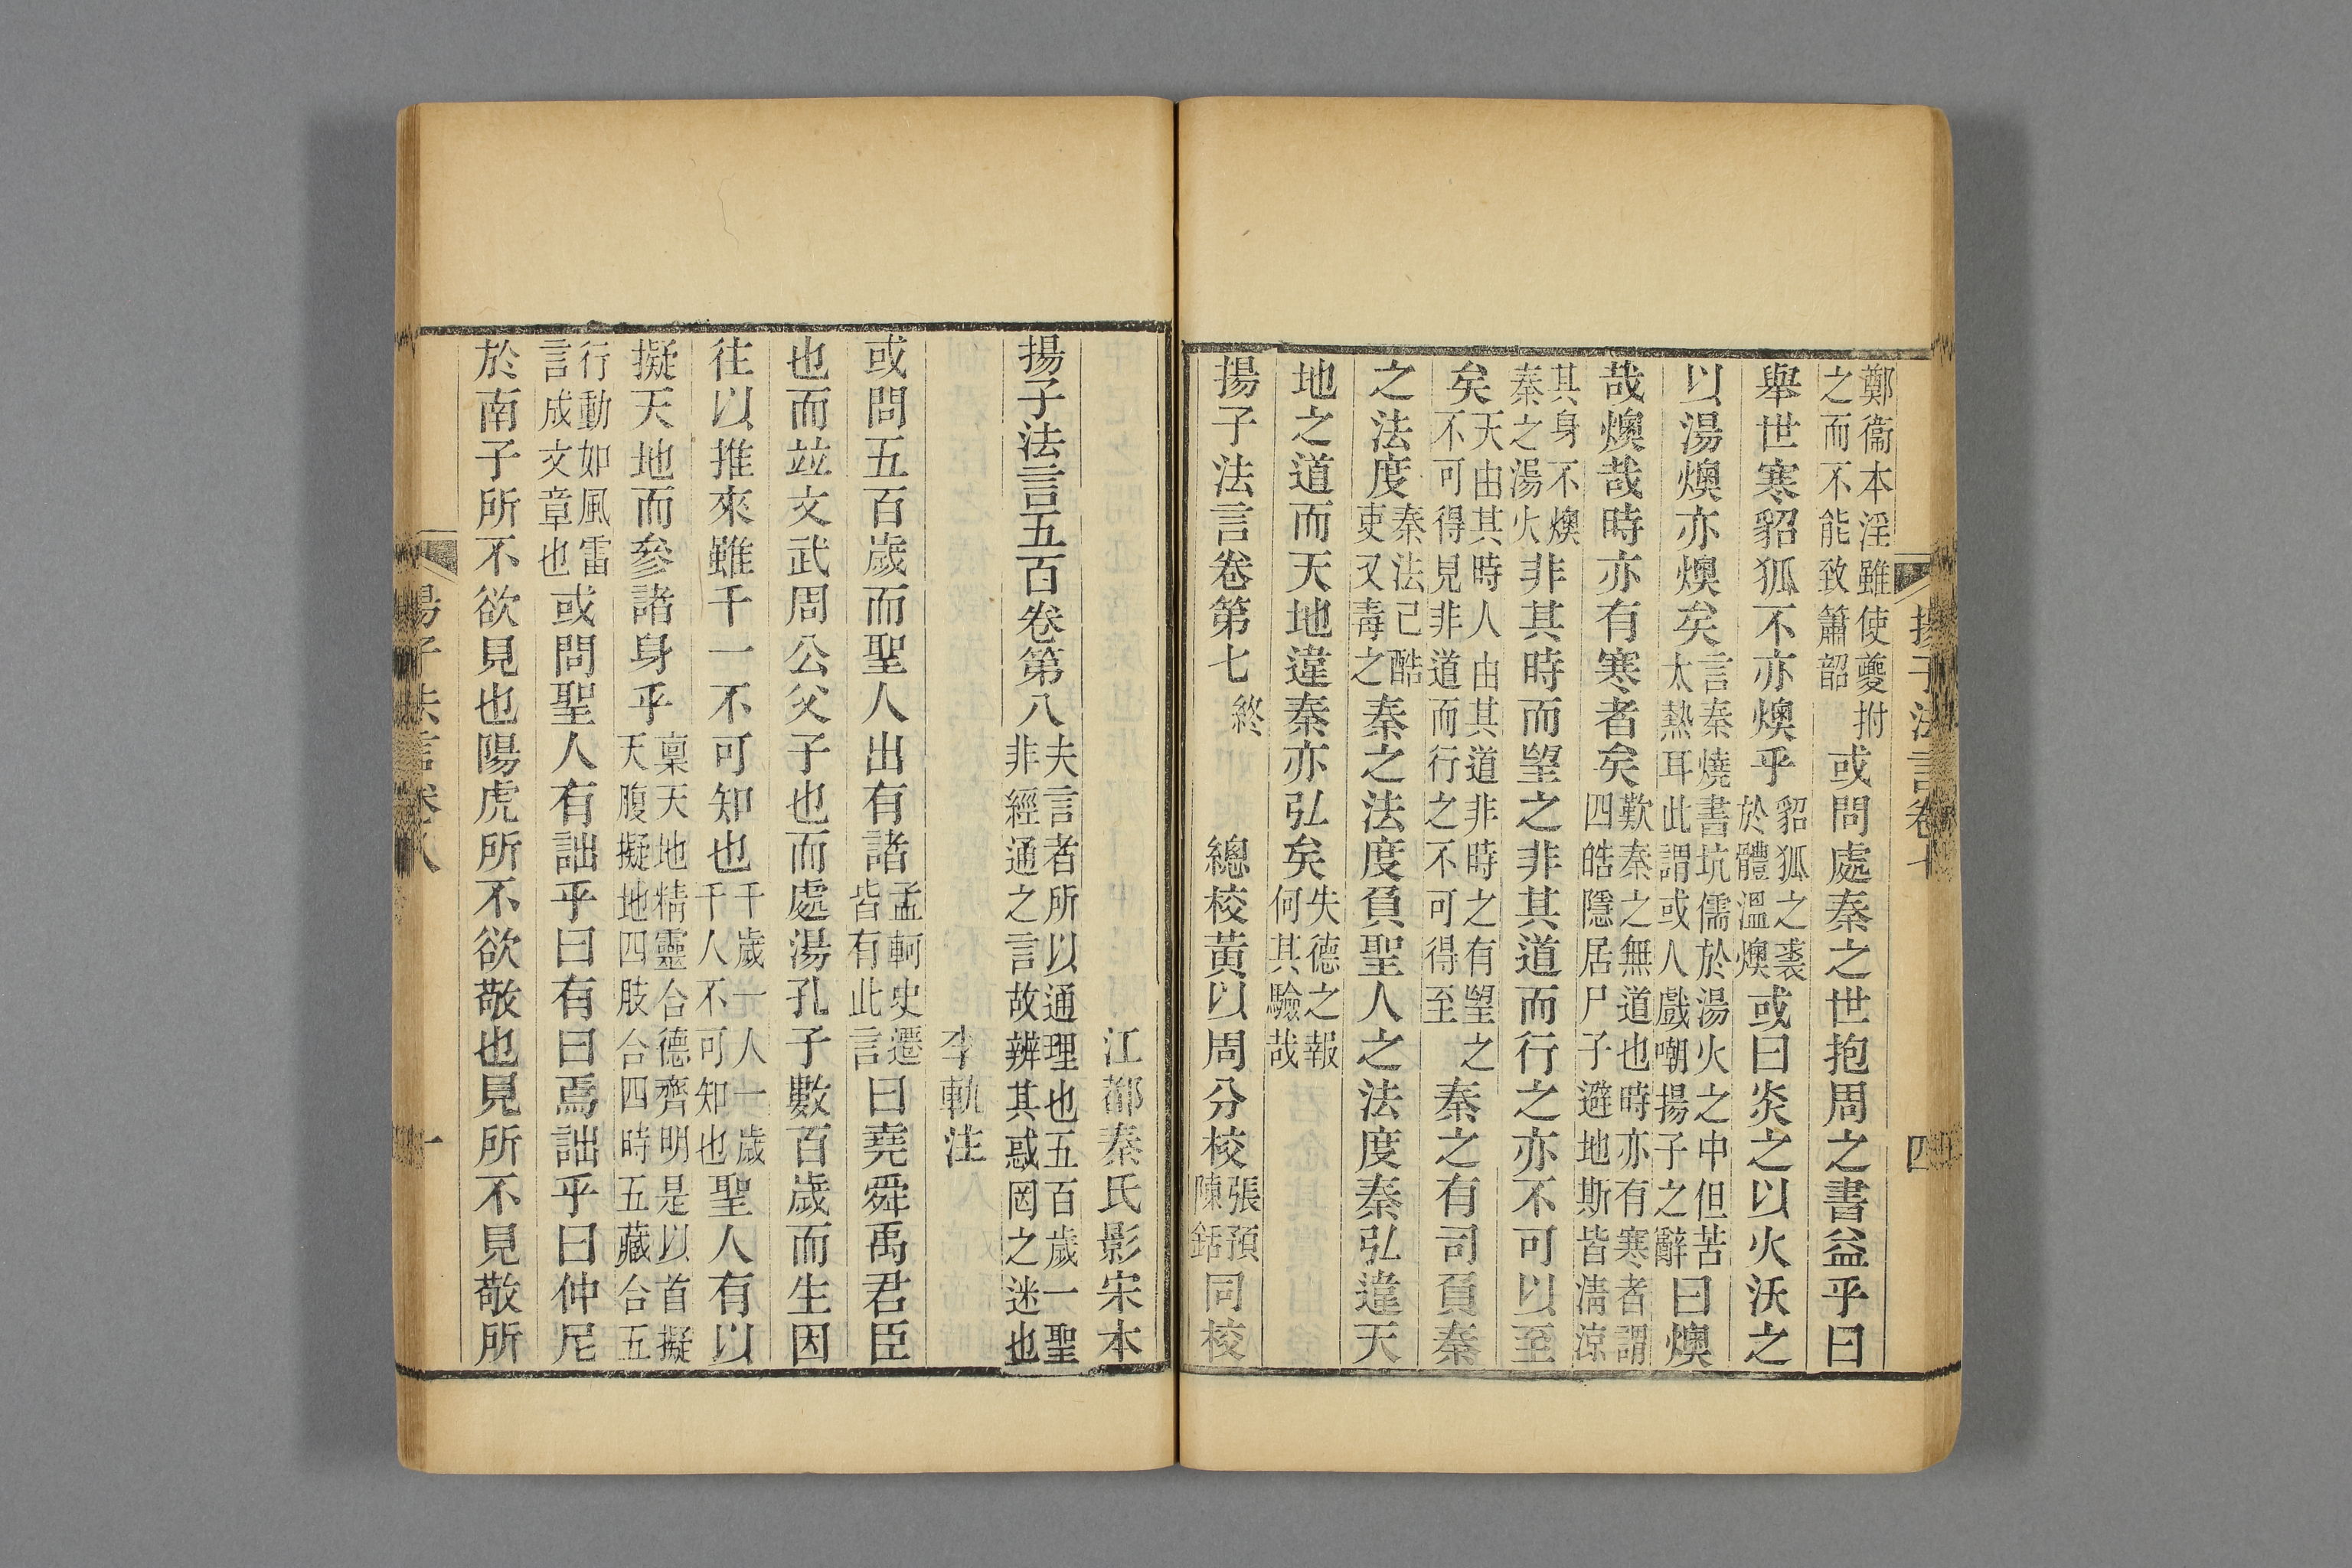 揚子法言卷七　四
鄭衞本淫雖使夔拊之而不能致簫韶或問處秦之世抱周之書益乎曰
舉世寒貂狐不亦燠乎貂狐之裘於體溫燠或曰炎之以火沃之
以湯燠亦燠矣言秦燒書坑儒於湯火之中但苦太熱耳此謂或人戲嘲揚子之辭曰燠
哉燠哉時亦有寒者矣歎秦之無道也時亦有寒者謂四皓隱居尸子避地斯皆淸涼
其身不燠秦之湯火非其時而望之非其道而行之亦不可以至
矣天由其時人由其道非時之有望之不可得見非道而行之不可得至秦之有司負秦
之法度秦法已酷吏又毒之秦之法度負聖人之法度秦弘違天
地之道而天地違秦亦弘矣失德之報何其驗哉
揚子法言卷第七終　總校黃以周分校張預陳銛同校
江都秦氏影宋本
揚子法言五百卷第八夫言者所以通理也五百歲一聖非經通之言故辨其惑罔之迷也
李軌注
或問五百歲而聖人出有諸孟軻史遷皆有此言曰堯舜禹君臣
也而竝文武周公父子也而處湯孔子數百歲而生因
往以推來雖千一不可知也千歲一人一歲千人不可知也聖人有以
擬天地而參諸身乎稟天地精靈合德齊明是以首擬天腹擬地四肢合四時五藏合五
行動如風雷言成文章也或問聖人有詘乎曰有曰焉詘乎曰仲尼
於南子所不欲見也陽虎所不欲敬也見所不見敬所
揚子法言卷八　一